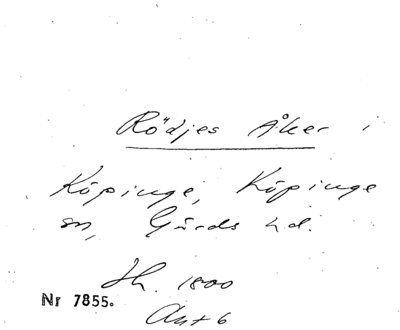 Rödjes Åker i
Köpinge, Köpinge
sn, Gärds hd.
Sk. 1800
Nr 7855.
Akt 6